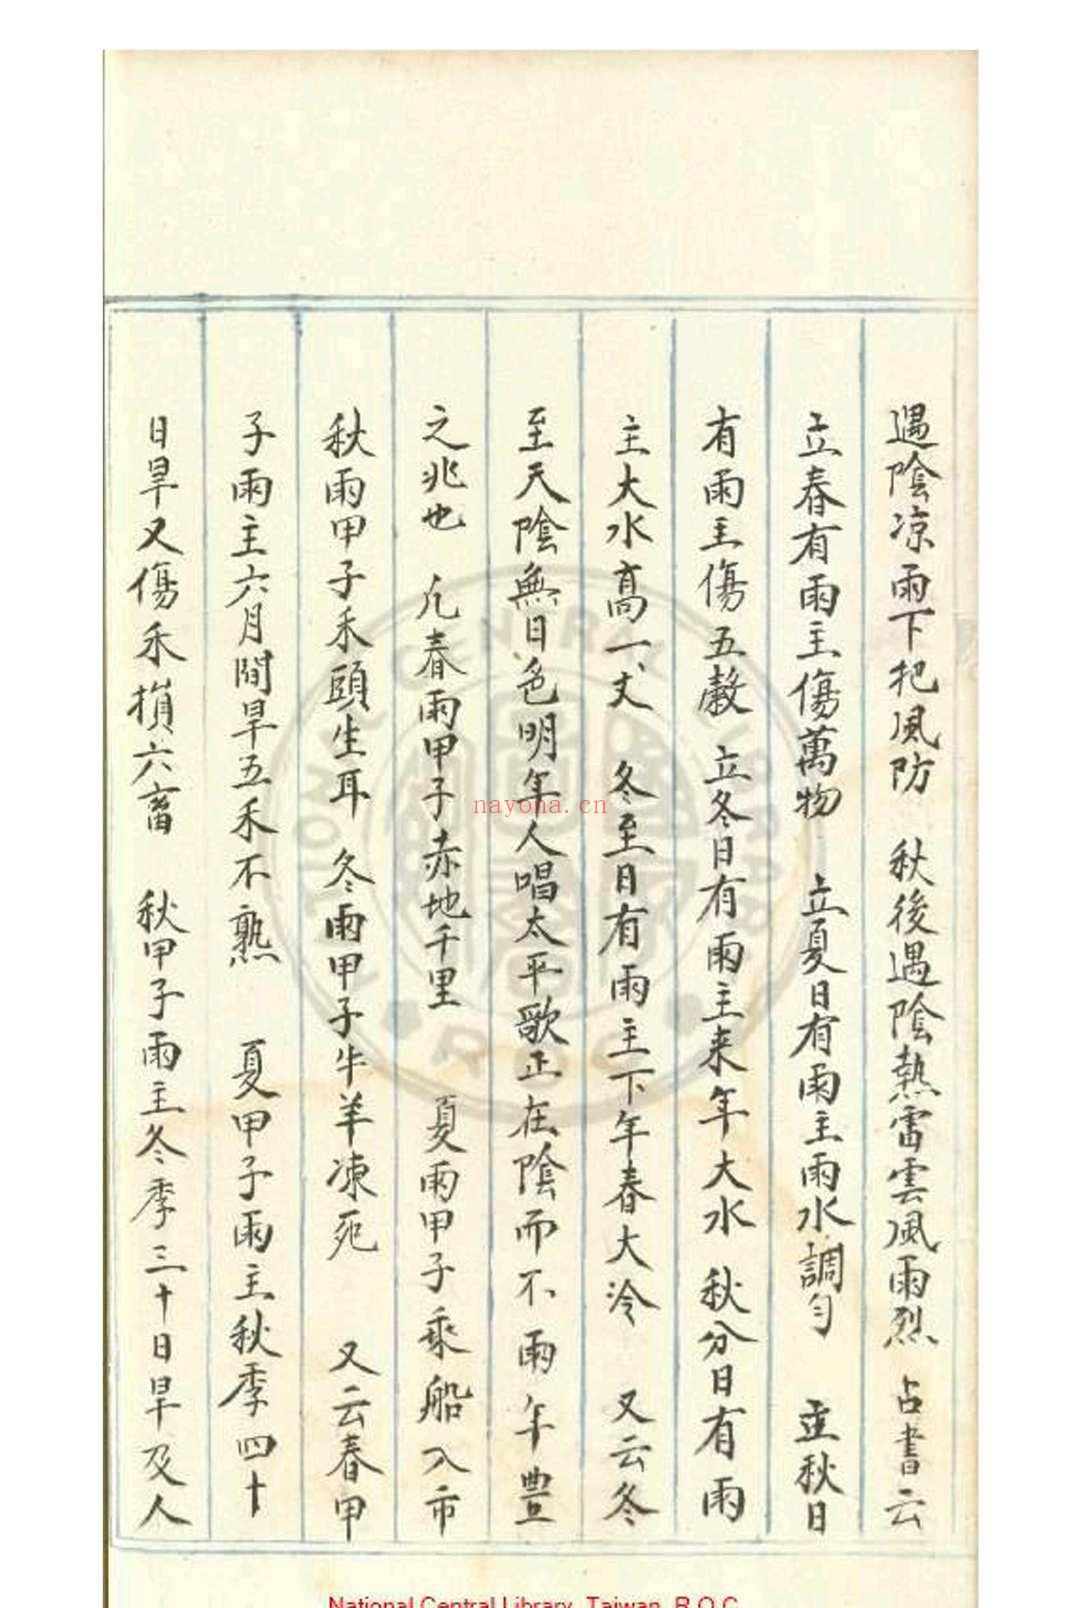 遇陰凉雨下把風防　秋後遇陰熱雷雲風雨烈　占書云
立春有雨主傷萬物　立夏日有雨主雨水調勻　立秋日
有雨主傷五穀　立冬日有雨主来年大水　秋分日有雨
主大水高一丈　冬至日有雨主下年春大冷　又云冬
至天陰無日色明年人唱太平歌正在陰而不雨年豐
之兆也　凡春雨甲子赤地千里　夏雨甲子乘船入市
秋雨甲子禾頭生耳　冬雨甲子牛羊凍死　又云春甲
子雨主六月間旱五禾不熟　夏甲子雨主秋季四十
日旱又傷禾損六畜　秋甲子雨主冬季三十日旱及人
nayona.cn
CENTRAL
R O C
National Central Library, Taiwan, R.O.C